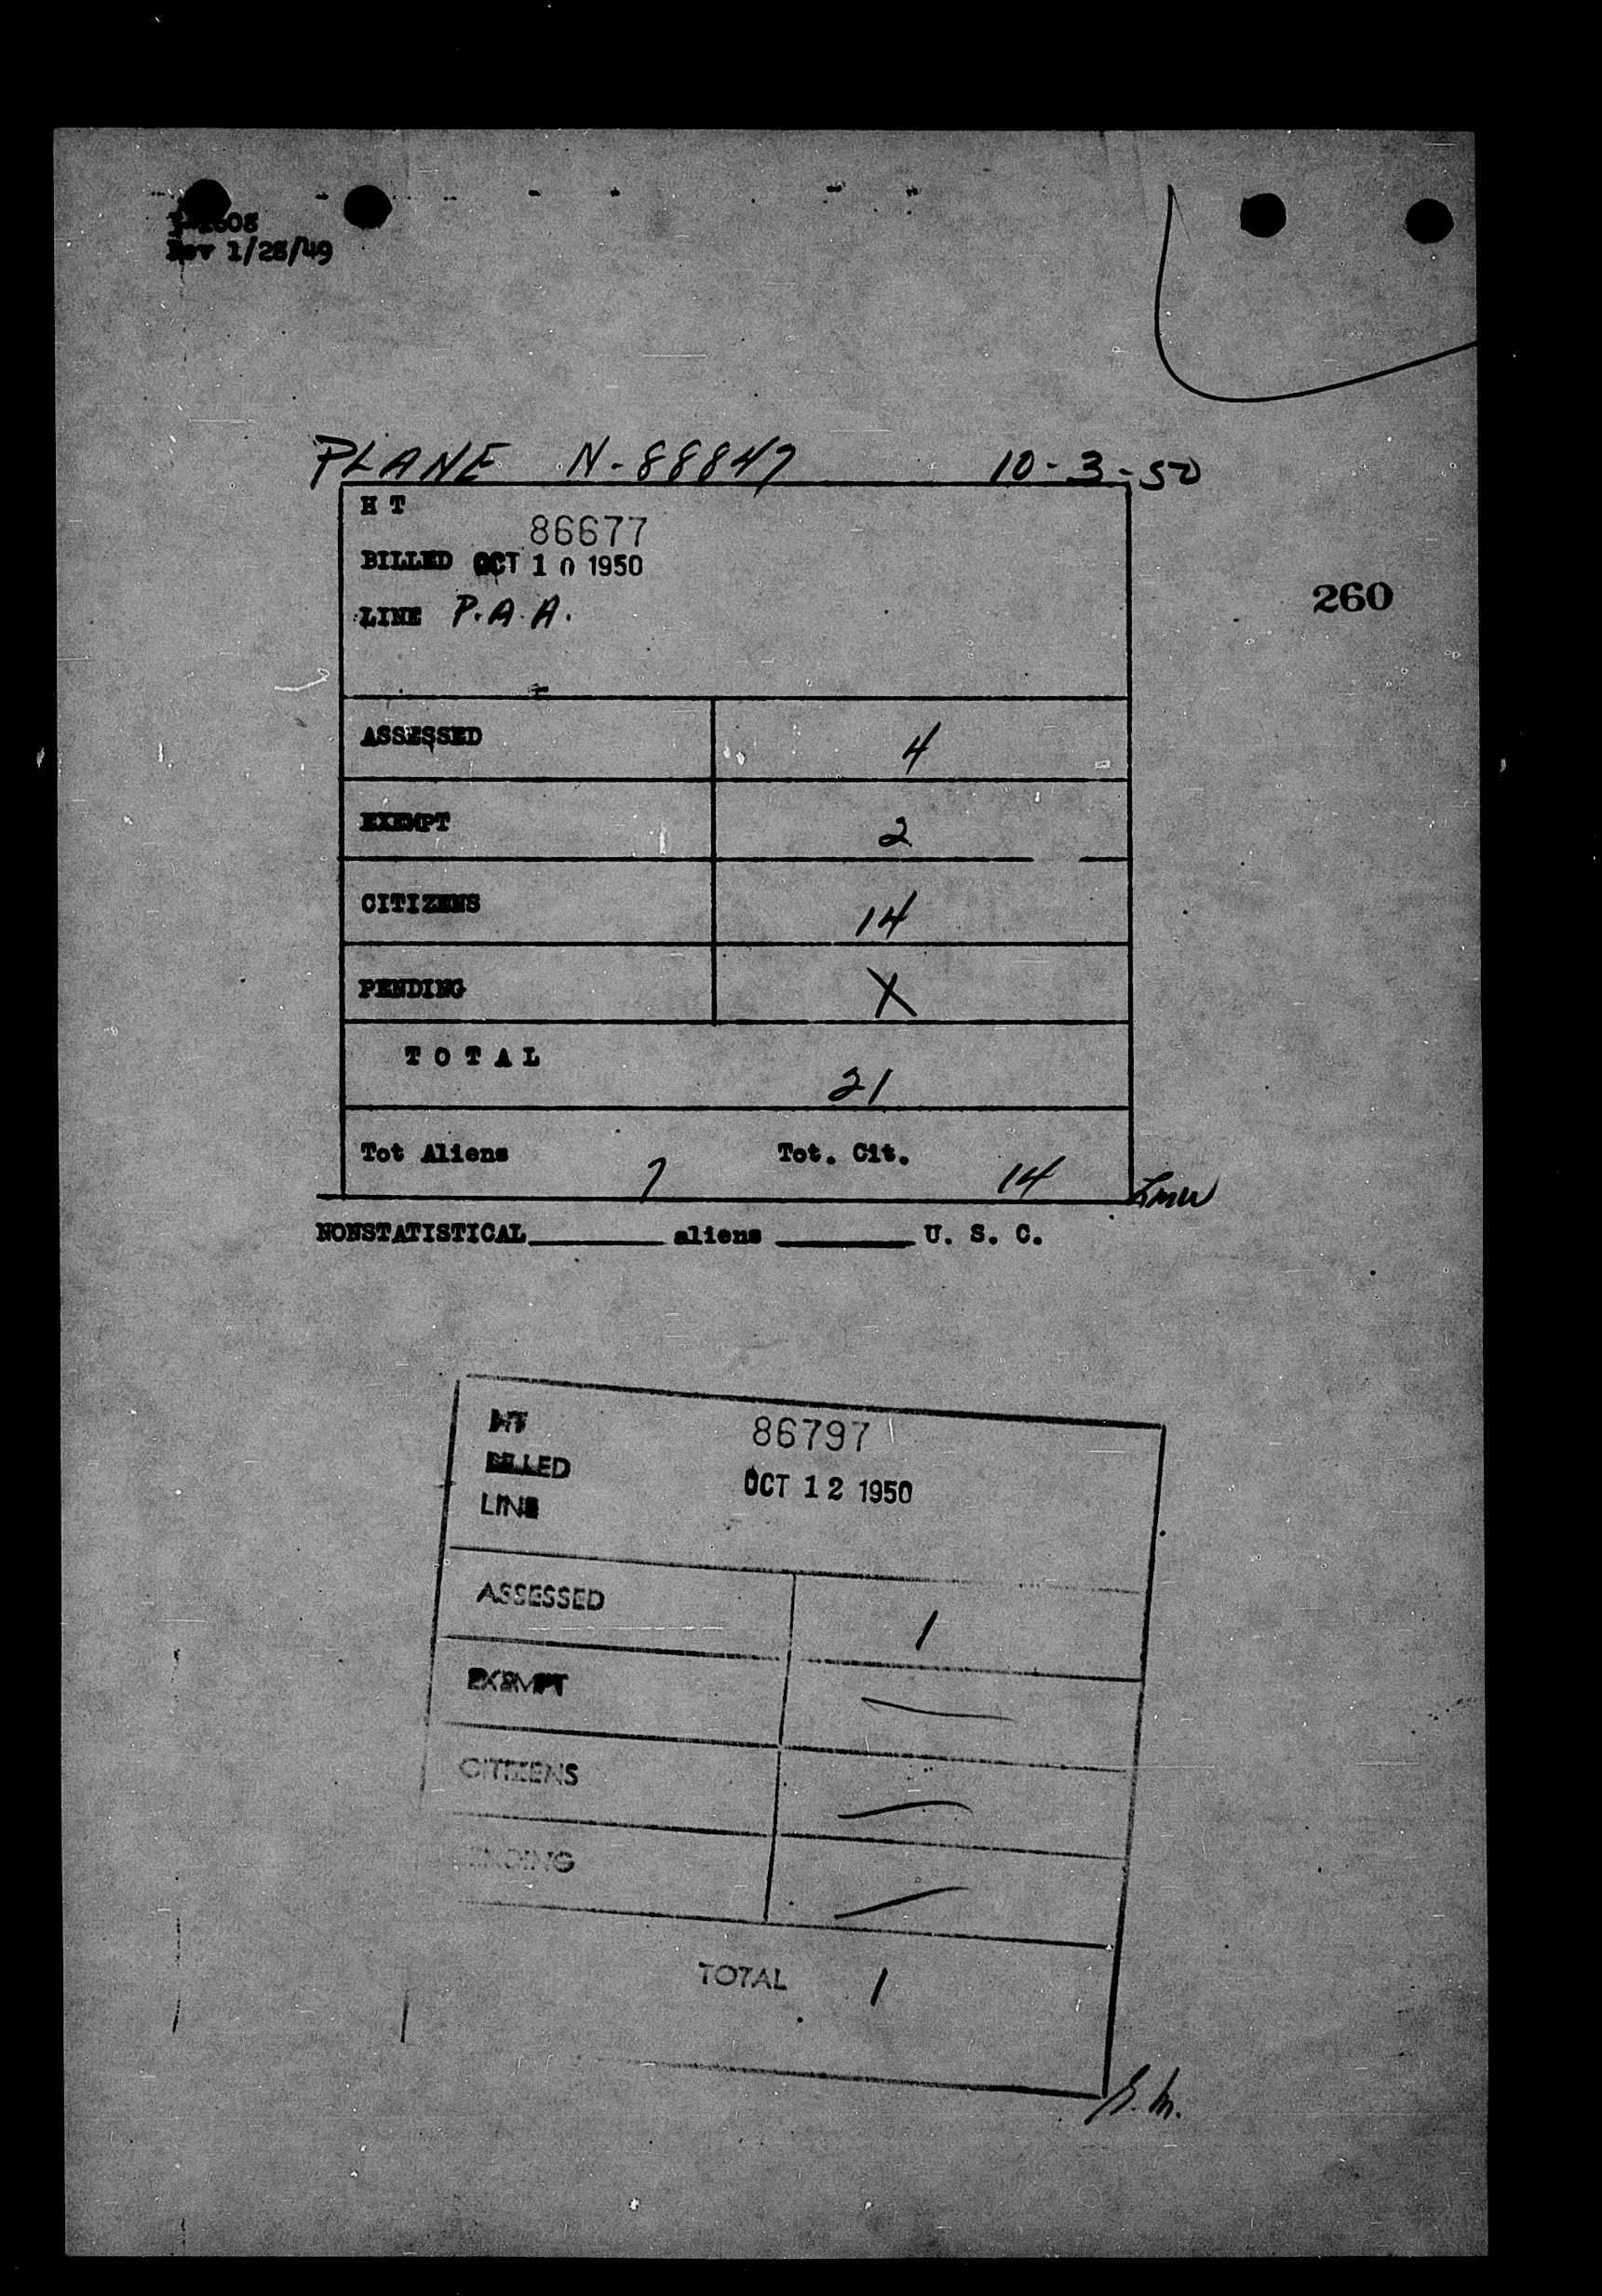 Rev 1/28/49
PLANE N-88847 10-3-50
H T
86677
BILLED OCT 10 1950
LINE P.A.A.
260
ASSESSED 4
EXEMPT 2
CITIZENS 14
PENDING X
TOTAL 21
Tot Aliens 7 Tot. Cit. 14
NONSTATISTICAL aliens U. S. C.
HT 86797
BILLED OCT 12 1950
LINE
ASSESSED 1
EXEMPT —
CITIZENS —
PENDING —
TOTAL 1